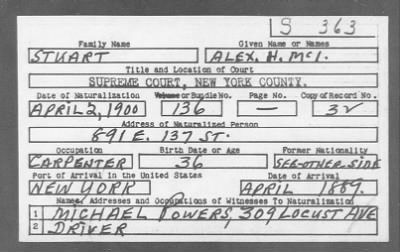 S 363
Family Name Given Name or Names
STUART ALEX. H. McI.
Title and Location of Court
SUPREME COURT, NEW YORK COUNTY.
Date of Naturalization Volume or Bundle No. Page No. Copy of Record No.
APRIL 2, 1900 136 — 32
Address of Naturalized Person
891 E. 137 ST.
Occupation Birth Date or Age Former Nationality
CARPENTER 36 SEE-OTHER-SIDE
Port of Arrival in the United States Date of Arrival
NEW YORK APRIL 1889.
Names, Addresses and Occupations of Witnesses To Naturalization
1 MICHAEL POWERS, 309 LOCUST AVE
2 DRIVER